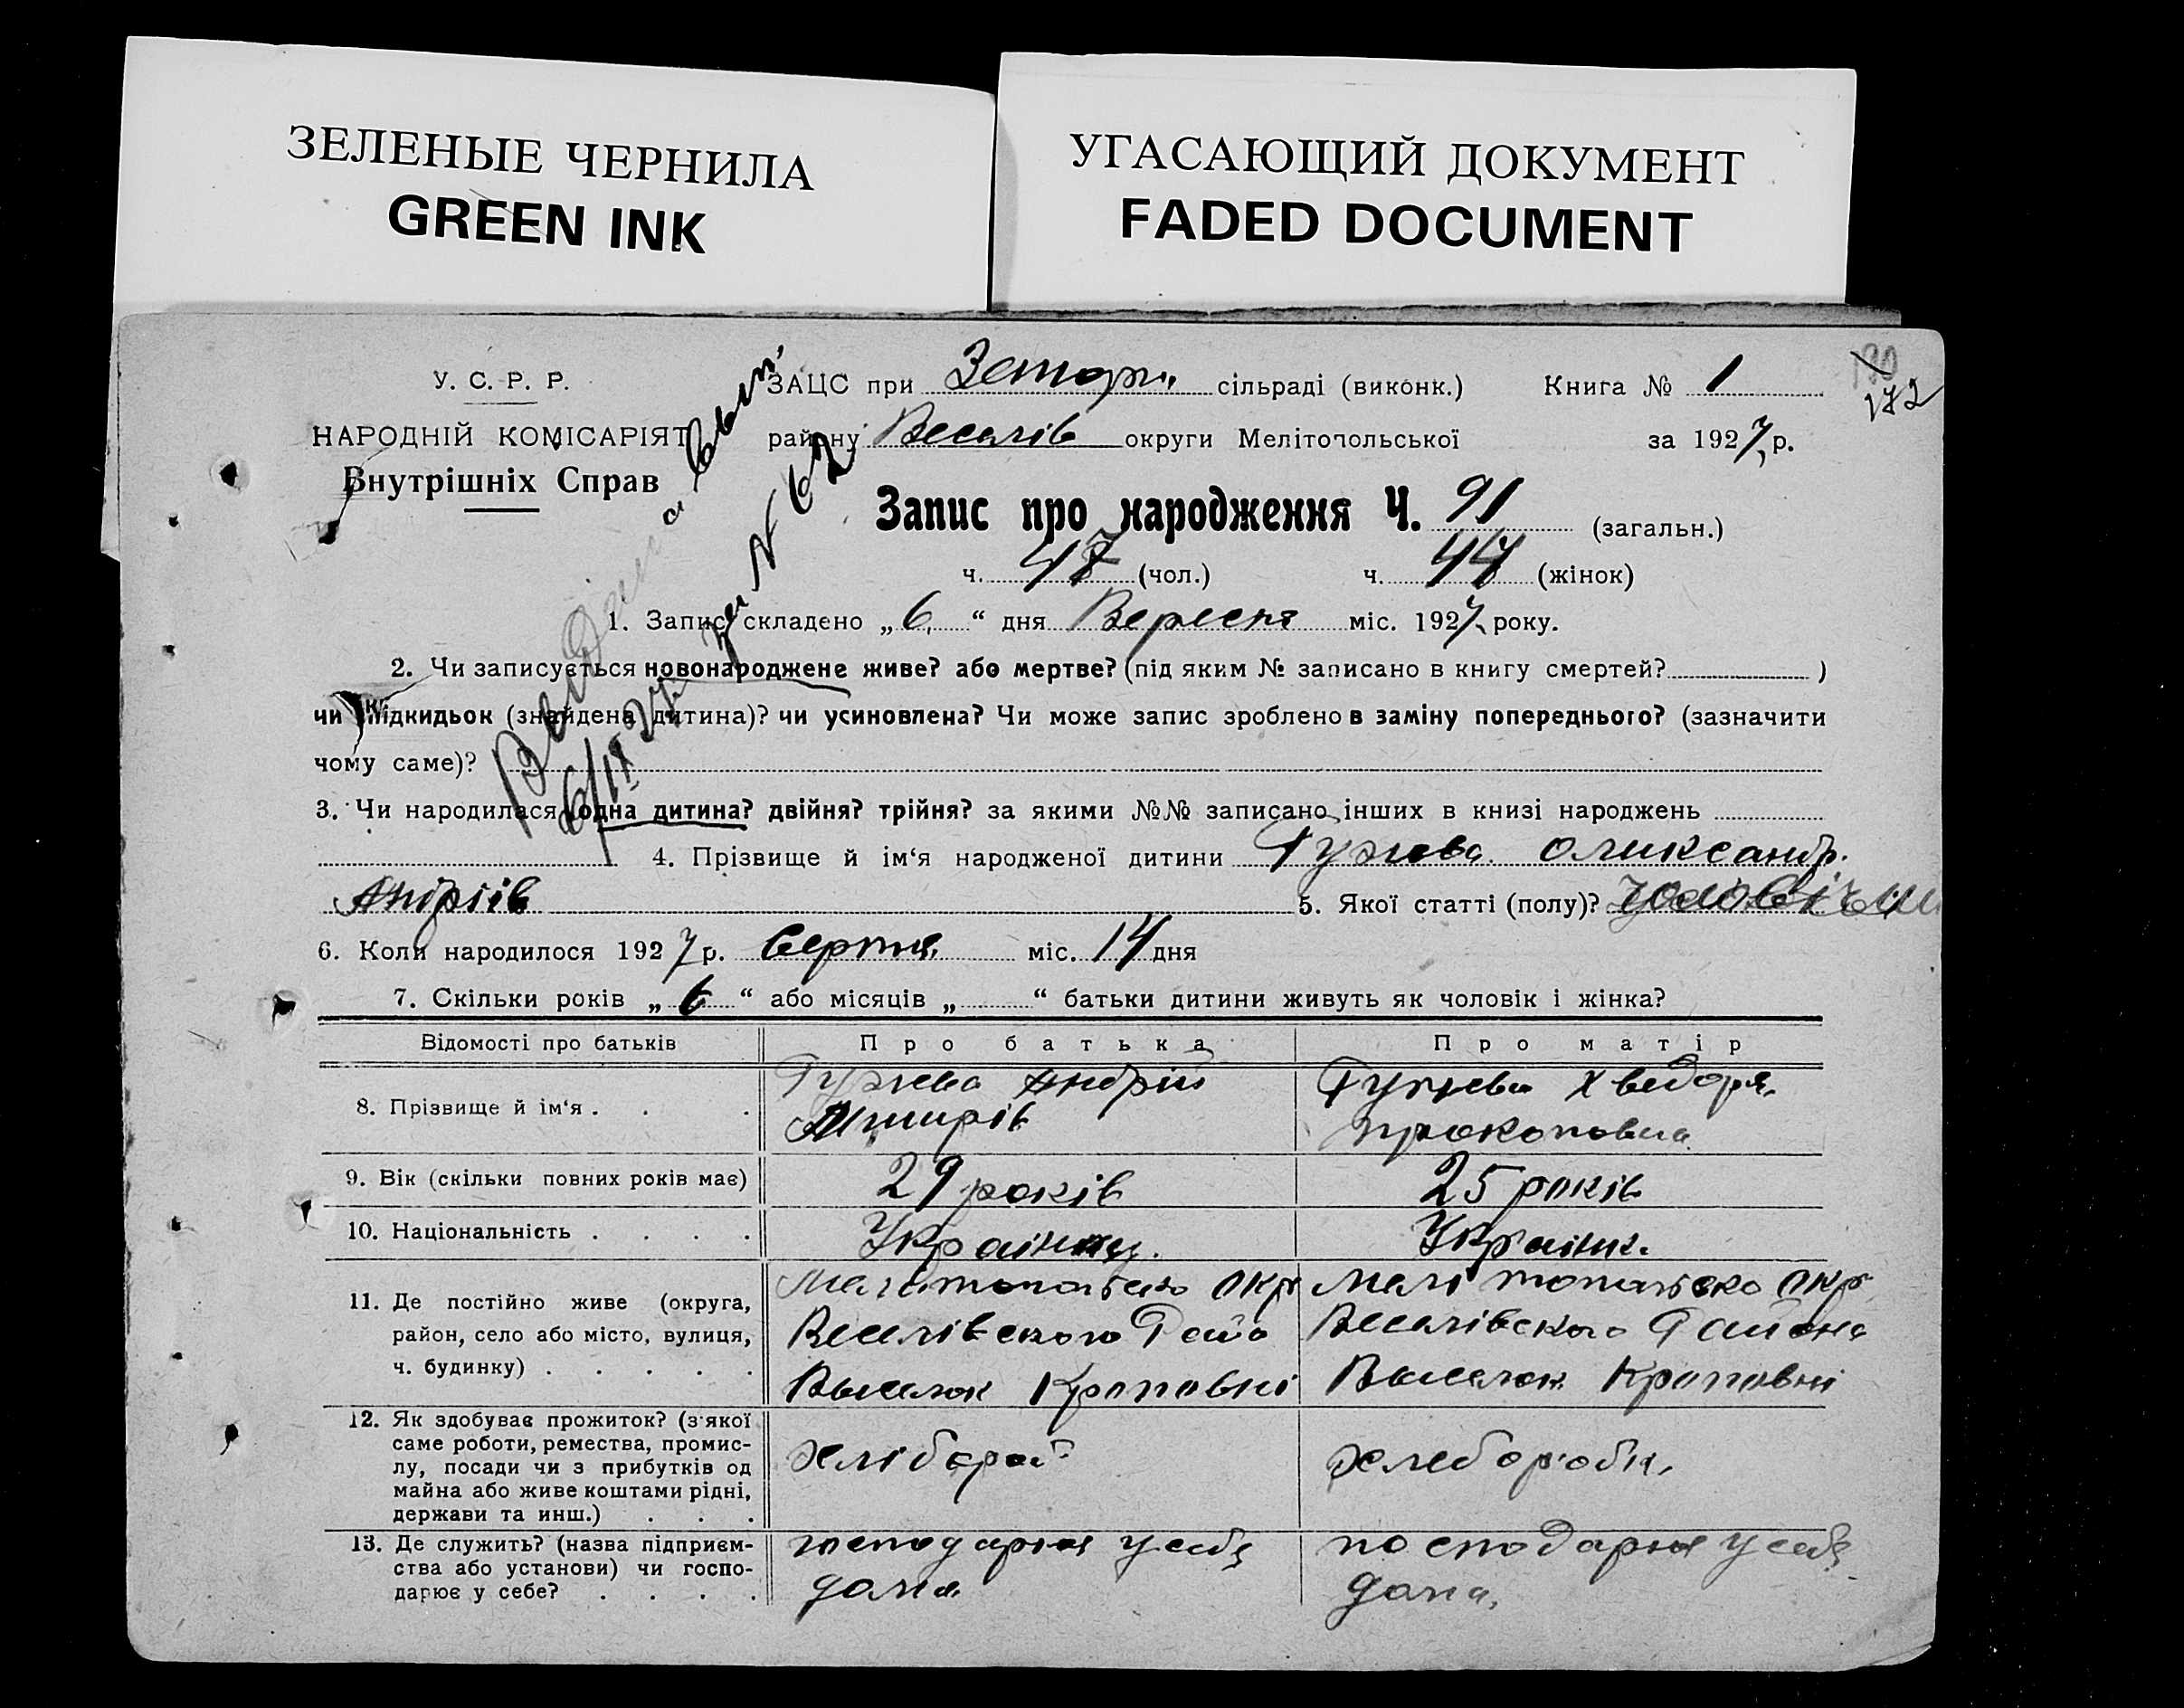 ЗЕЛЕНЫЕ ЧЕРНИЛА
GREEN INK
УГАСАЮЩИЙ ДОКУМЕНТ
FADED DOCUMENT
У. С. Р. Р.
НАРОДНІЙ КОМІСАРІЯТ
Внутрішніх Справ
ЗАЦС при сільраді (виконк.) Книга № 1
172
району Веселів округи Мелітопольської за 1927 р.
Запис про народження Ч. 91 (загальн.)
ч. 47 (чол.) ч. 44 (жінок)
Видана вып.
6/IX 27 за N 62
1. Запис складено „ 6 “ дня Вересня міс. 1927 року.
2. Чи записується новонароджене живе? або мертве? (під яким № записано в книгу смертей? )
чи підкидьок (знайдена дитина)? чи усиновлена? Чи може запис зроблено в заміну попереднього? (зазначити
чому саме)?
3. Чи народилася одна дитина? двійня? трійня? за якими №№ записано інших в книзі народжень
4. Прізвище й ім‘я народженої дитини Гужева Оликсандр.
Андріів 5. Якої статті (полу)?
6. Коли народилося 1927 р. Серпня міс. 14 дня
7. Скільки років „ 6 “ або місяців „ “ батьки дитини живуть як чоловік і жінка?
Відомості про батьків Про батька Про матір
8. Прізвище й ім‘я . . . Гужева Андрій Гужева Хведоря
прокоповна
9. Вік (скільки повних років має) 29 років 25 років
10. Національність . . . . Украінец. Украінк.
11. Де постійно живе (округа, район, село або місто, вулиця, ч. будинку) . . . . . Мелітопольско Окр Мелітопольско Окр
Веселівского Райо Веселівского Района
Выселок Кроповні Выселок Кроповні
12. Як здобуває прожиток? (з якої саме роботи, ремества, промислу, посади чи з прибутків од майна або живе коштами рідні, держави та инш.) . . . хлібороб хлеборобка
13. Де служить? (назва підприємства або установи) чи господарює у себе? . . . . господарюя у себя господарюя у себя
дома дома,